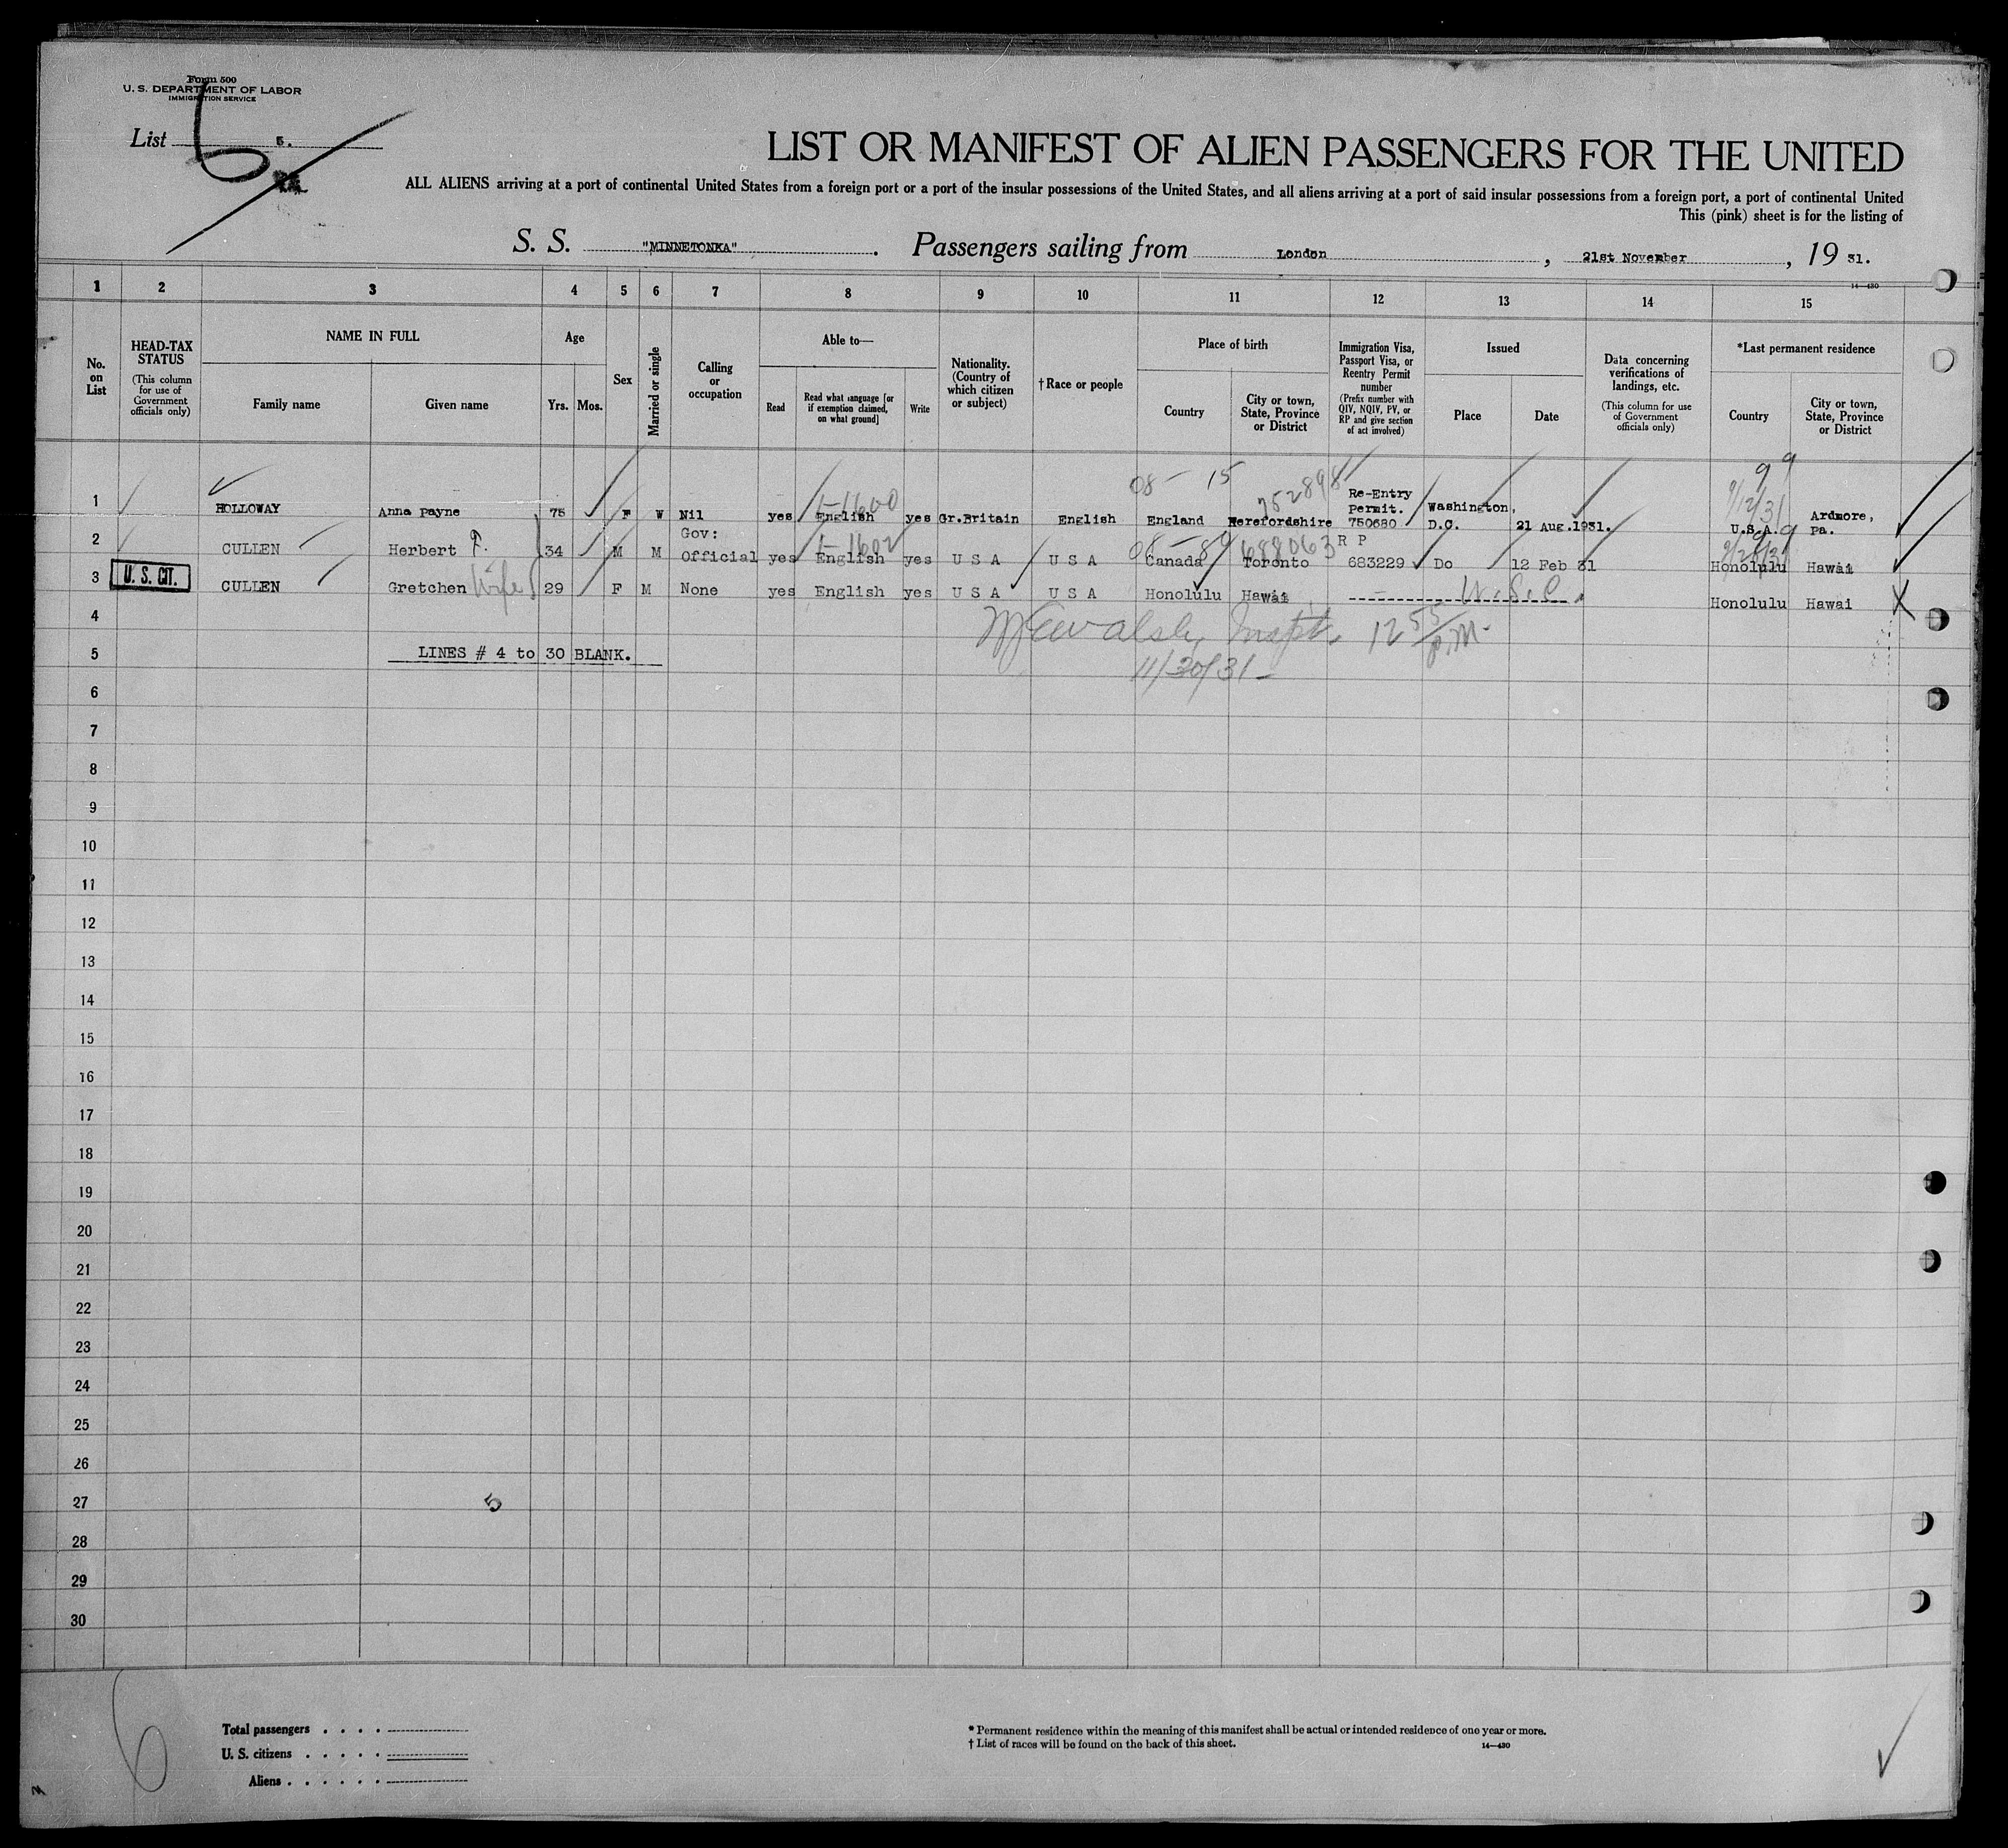 Form 500
U. S. DEPARTMENT OF LABOR
IMMIGRATION SERVICE
List 5.
6
LIST OR MANIFEST OF ALIEN PASSENGERS FOR THE UNITED
ALL ALIENS arriving at a port of continental United States from a foreign port or a port of the insular possessions of the United States, and all aliens arriving at a port of said insular possessions from a foreign port, a port of continental United
This (pink) sheet is for the listing of
S. S. "MINNETONKA". Passengers sailing from London, 21st November, 19 31.
14—430
1 2 3 4 5 6 7 8 9 10 11 12 13 14 15
No. on List
HEAD-TAX STATUS (This column for use of Government officials only)
NAME IN FULL
Family name Given name
Age
Yrs. Mos.
Sex
Married or single
Calling or occupation
Able to—
Read Read what language [or if exemption claimed, on what ground] Write
Nationality. (Country of which citizen or subject)
† Race or people
Place of birth
Country City or town, State, Province or District
Immigration Visa, Passport Visa, or Reentry Permit number (Prefix number with QIV, NQIV, PV, or RP and give section of act involved)
Issued
Place Date
Data concerning verifications of landings, etc. (This column for use of Government officials only)
*Last permanent residence
Country City or town, State, Province or District
08 - 15 752898 9 9
9/12/31
1 HOLLOWAY Anna Payne 75 F W Nil yes English yes Gr.Britain English England Herefordshire Re-Entry Permit. 750680 Washington, D.C. 21 Aug.1931. U.S.A. Ardmore, Pa.
1-1600
1-1602 08 - 89 688063
2 CULLEN Herbert 34 M M Gov: Official yes English yes U S A U S A Canada Toronto R P 683229 Do 12 Feb 31 Honolulu Hawai
3 U. S. CIT. CULLEN Gretchen Wife 29 F M None yes English yes U S A U S A Honolulu Hawai U.S.C. Honolulu Hawai
4 Walsh, Inspt. 12 55 P.M.
5 LINES # 4 to 30 BLANK. 11/30/31
6
7
8
9
10
11
12
13
14
15
16
17
18
19
20
21
22
23
24
25
26
27 5
28
29
30
6
Total passengers . . . .
U. S. citizens . . . . .
Aliens . . . . . .
* Permanent residence within the meaning of this manifest shall be actual or intended residence of one year or more.
† List of races will be found on the back of this sheet. 14—430